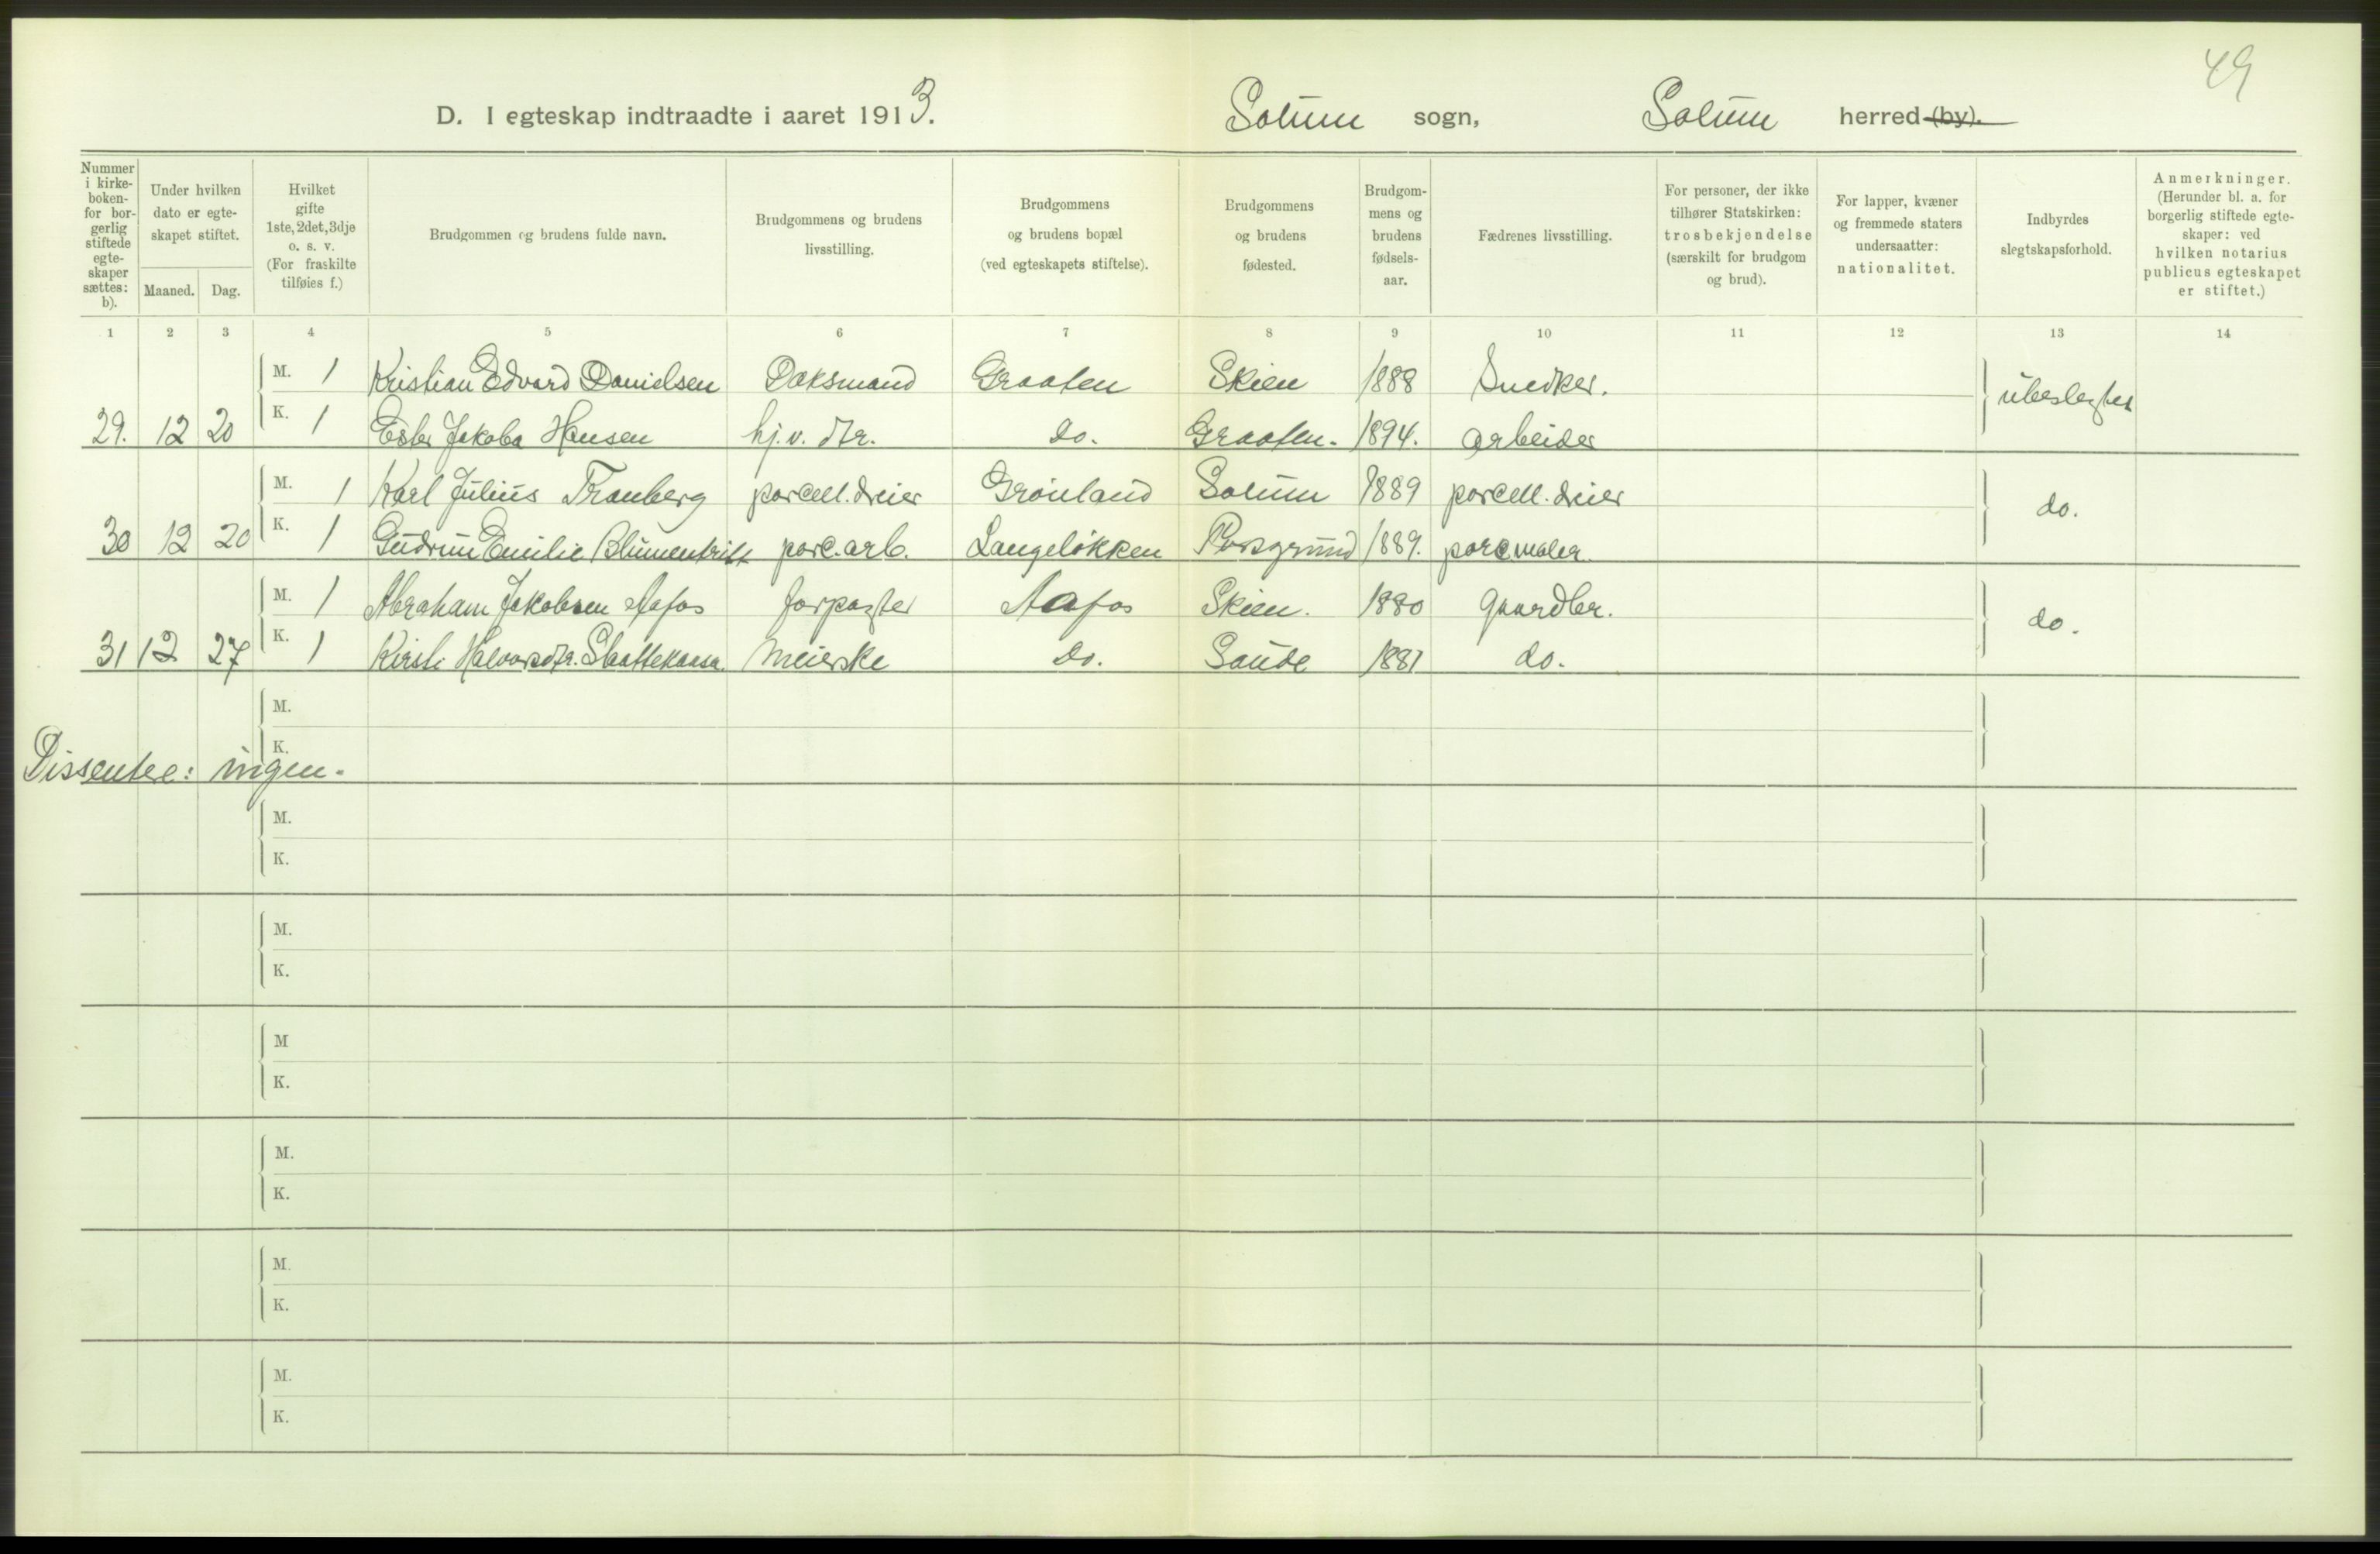 49
D. I egteskap indtraadte i aaret 1913. Solum sogn, Solum herred (by).
Nummer i kirkeboken for borgerlig stiftede egteskaper sættes: b).
Under hvilken dato er egteskapet stiftet.
Maaned. Dag.
Hvilket gifte 1ste, 2det, 3dje o. s. v. (For fraskilte tilføies f.)
Brudgommen og brudens fulde navn.
Brudgommens og brudens livsstilling.
Brudgommens og brudens bopæl (ved egteskapets stiftelse).
Brudgommens og brudens fødested.
Brudgommens og brudens fødselsaar.
Fædrenes livsstilling.
For personer, der ikke tilhører Statskirken: trosbekjendelse (særskilt for brudgom og brud).
For lapper, kvæner og fremmede staters undersaatter: nationalitet.
Indbyrdes slegtskapsforhold.
Anmerkninger. (Herunder bl. a. for borgerlig stiftede egteskaper: ved hvilken notarius publicus egteskapet er stiftet.)
1 2 3 4 5 6 7 8 9 10 11 12 13 14
M. 1 Kristian Edvard Danielsen Doksmand Graaten Skien 1888 Snedker. ubeslegtet
29. 12 20 K. 1 Ester Jakoba Hansen hj.v. dtr. do. Graaten. 1894. arbeider
M. 1 Karl Julius Tranberg porcell. dreier Grønland Solum 1889 porcell. dreier do.
30 12 20 K. 1 Gudrun Emilie Blumentritt porc. arb. Langeløkken Porsgrund 1889. porc maler.
M. 1 Abraham Jakobsen Aafos forpagter Aafos Skien. 1880 gaardbr. do.
31 12 27 K. 1 Kirsti Halvorsdtr. Slaattekaasa Meierske do. Saude 1881 do.
M.
K.
Dissentere: ingen.
M.
K.
M.
K.
M
K.
M.
K.
M.
K.
M.
K.